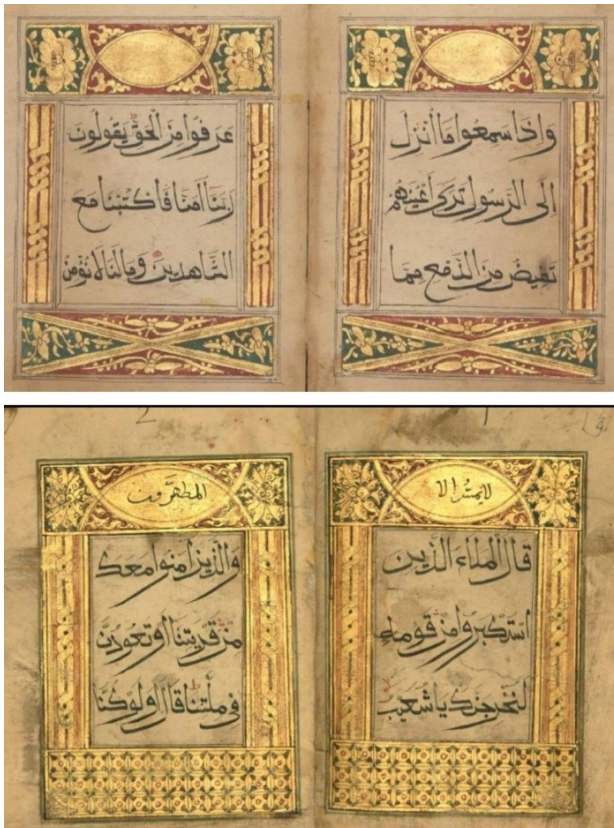 وَاِذَا سَمِعُوا مَا اُنْزِلَ
اِلَى الرَّسُولِ تَرَى اَعْيُنَهُمْ
تَفِيضُ مِنَ الدَّمْعِ مِمَّا
عَرَفُوا مِنَ الْحَقِّ يَقُولُونَ
رَبَّنَا اٰمَنَّا فَاكْتُبْنَا مَعَ
الشَّاهِدِينَ وَمَا لَنَا لَا نُؤْمِنُ
لا يمسه الا
قَالَ الْمَلَاءُ الَّذِينَ
اسْتَكْبَرُوا مِنْ قَوْمِهِ
لَنُخْرِجَنَّكَ يَا شُعَيْبُ
المطهرون
وَالَّذِينَ اٰمَنُوا مَعَكَ
مِنْ قَرْيَتِنَا اَوْ لَتَعُودُنَّ
فِى مِلَّتِنَا قَالَ اَوَلَوْ كُنَّا